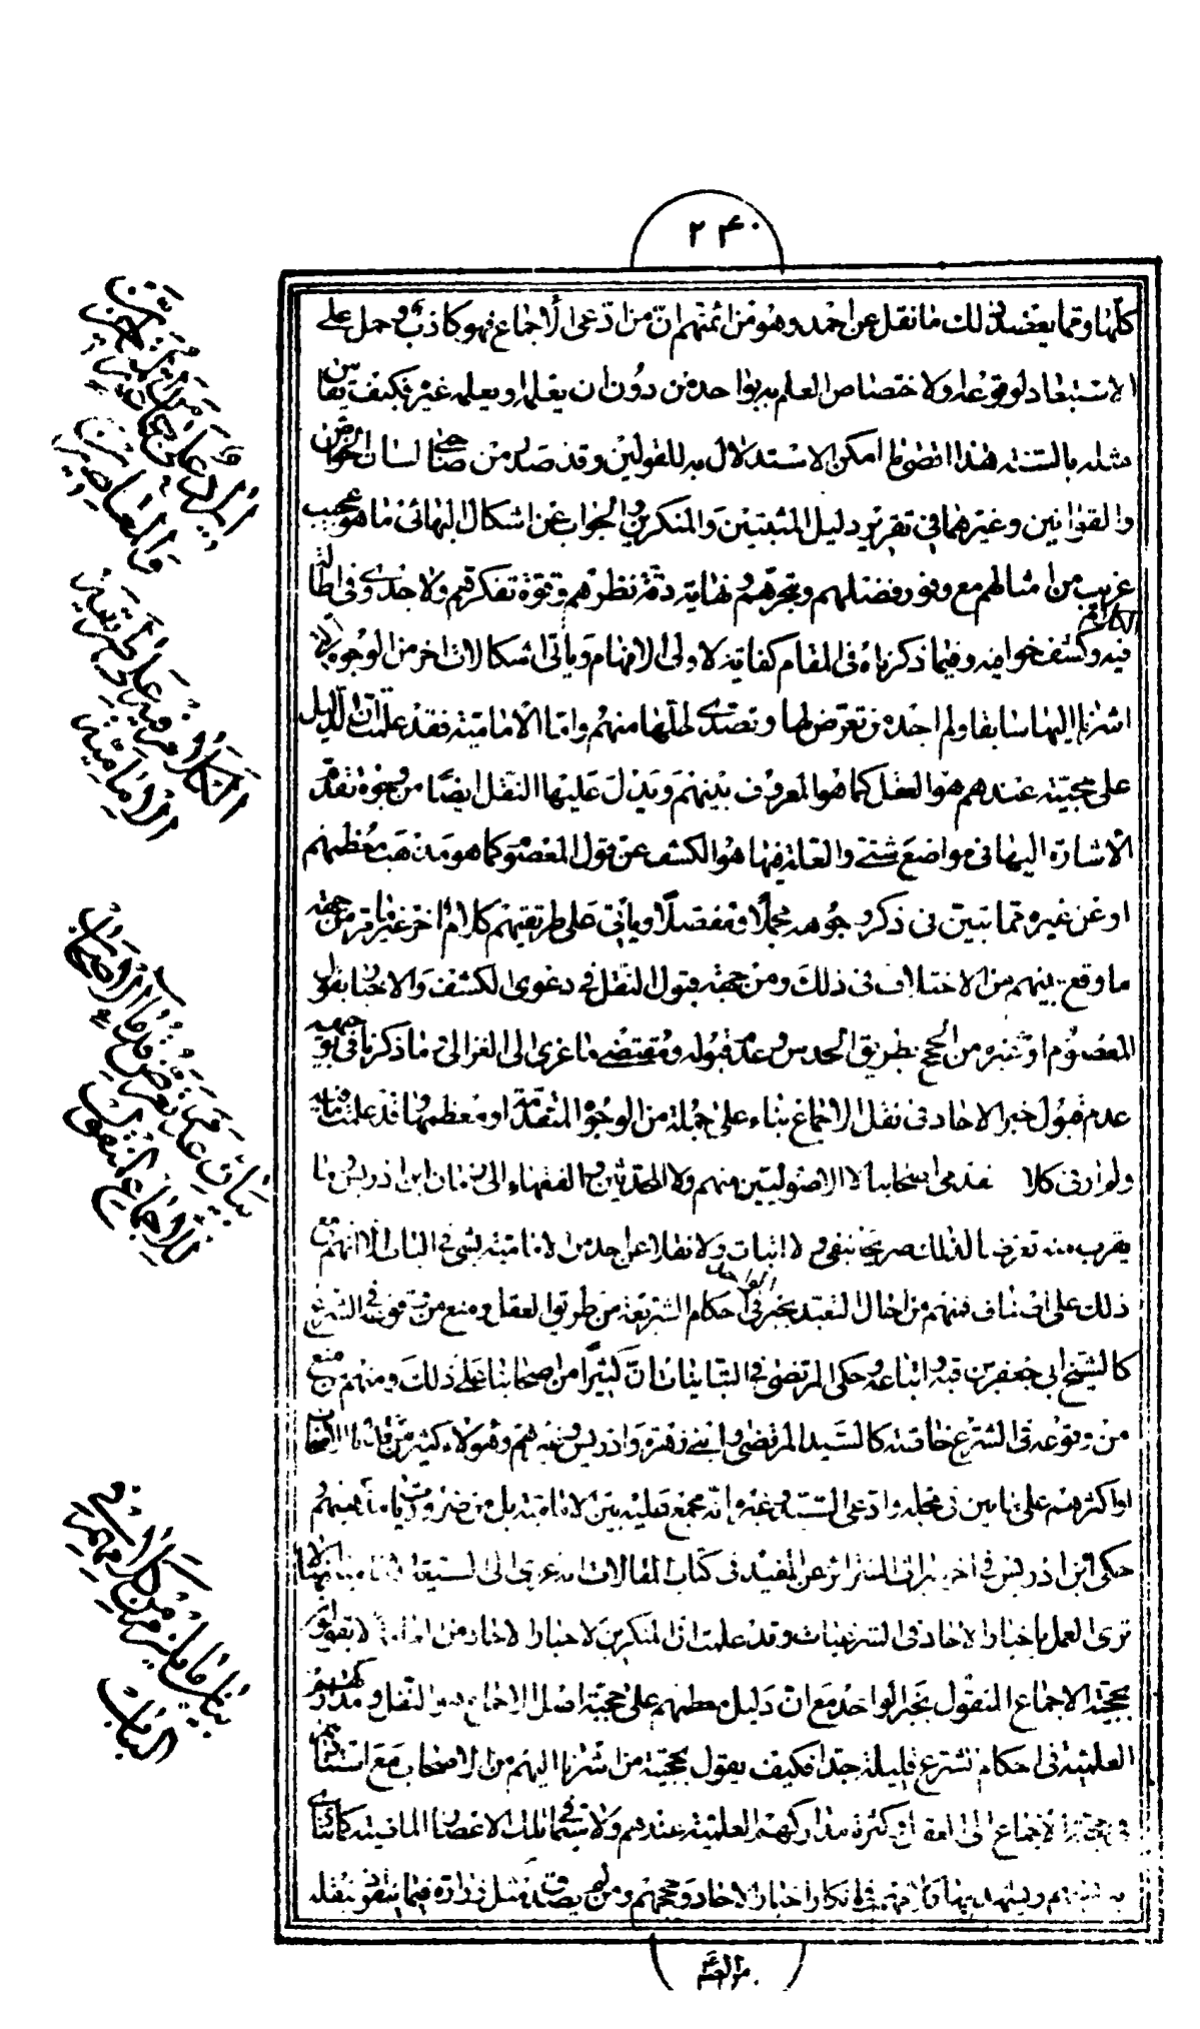 ٢٤٠
كلها ومما يعضد ذلك ما نقل عن احمد وهو من ائمتهم ان من ادعى الاجماع فهو كاذب وحمل على
الاستبعاد لوقوعه ولاختصاص العلم به بواحد من دون ان يعلمه او يعلمه غيره فكيف يقاس
مثله بالسنة هذا اقصى ما امكن الاستدلال به للقولين وقد صدر من صاحبي لسان الخواص
والقوانين وغيرهما في تقرير دليل المثبتين والمنكرين والجواب عن اشكال البهائي ما هو عجيب
غريب من امثالهم مع وفور فضلهم وتبحرهم ونهاية دقة نظرهم وقوة تفكرهم ولا جدوى في اطالة الكلام
فيه وكشف خوافيه وفيما ذكرناه في المقام كفاية لاولى الافهام ويأتي اشكالات اخر من الوجوه التي
اشرنا اليها سابقا ولم اجد من تعرض لها وتصدى لحلها منهم واما الامامية فقد علمت ان الدليل
على حجيته عندهم هو العقل كما هو المعروف بينهم ويدل عليها النقل ايضا من وجوه تقدم
الاشارة اليها في مواضع شتى والعلة فيها هو الكشف عن قول المعصوم كما هو مذهب معظمهم
او عن غيره مما تبين في ذكر وجوهه مجملا ومفصلا ويأتي على طريقتهم كلام اخر غير ما مر من جهة
ما وقع بينهم من الاختلاف في ذلك ومن جهة قبول النقل في دعوى الكشف والاخبار بقول
المعصوم او غيره من الحجج بطريق الحدس وعدم قبوله ومقتضى ما عزى الى الغزالي وما ذكرنا في توجيهه
عدم قبول خبر الاحاد في نقل الاجماع بناء على جملة من الوجوه المتقدمة او معظمها قد علمت ما فيه
ولم ار في كلام قدماء اصحابنا لا الاصوليين منهم ولا المحدثين ولا الفقهاء الى زمان ابن ادريس وما
يقرب منه تعرضا لذلك صريحا بنفي ولا اثبات ولا نقلا عن احد من الامامية بشئ في الباب الا انهم مع
ذلك على اصناف فمنهم من احال التعبد بخبر الواحد في احكام الشريعة من طريق العقل ومنع من وقوعه في الشرع
كالشيخ ابي جعفر بن قبة واتباعه وحكى المرتضى في التبانيات ان كثيرا من اصحابنا على ذلك ومنهم من منع
من وقوعه في الشرع خاصة كالسيد المرتضى وابني زهرة وادريس وغيرهم وهؤلاء كثير من قدماء الاصحاب
او اكثرهم على ما بين في محله وادعى السيد وغيره انه مجمع عليه بين الامامية بل من ضروريات مذهبهم
حكى ابن ادريس في اخر عن المفيد في كتاب المقالات انه عزى الى الامامية انها لا
ترى العمل باخبار الاحاد في الشرعيات وقد علمت ان المنكرين لاخبار الاحاد من لا يقولون
بحجية الاجماع المنقول بخبر الواحد مع ان دليل معظمهم على حجية اصل الاجماع هو النقل ومداركهم
العلمية في احكام الشرع قليلة جدا فكيف يقول بحجيته من اشرنا اليهم من الاصحاب مع استنادهم
في حجية الاجماع الى العقل وكثرة مداركهم العلمية عندهم ولا سيما في تلك الاعصار الماضية كما تنادى
به ويشهد بها في انكار اخبار الاحاد وحججهم ومن لم يصدق مثل زرارة فيما يتفق بنقله
من العصر
الرد على جماعة من المتأخرين
والمعاصرين
الكلام فيه على طريقة
الامامية
بيان عدم تعرض قدماء الاصحاب
للاجماع المنقول
بيان ما يلزم من كلامهم في
الباب